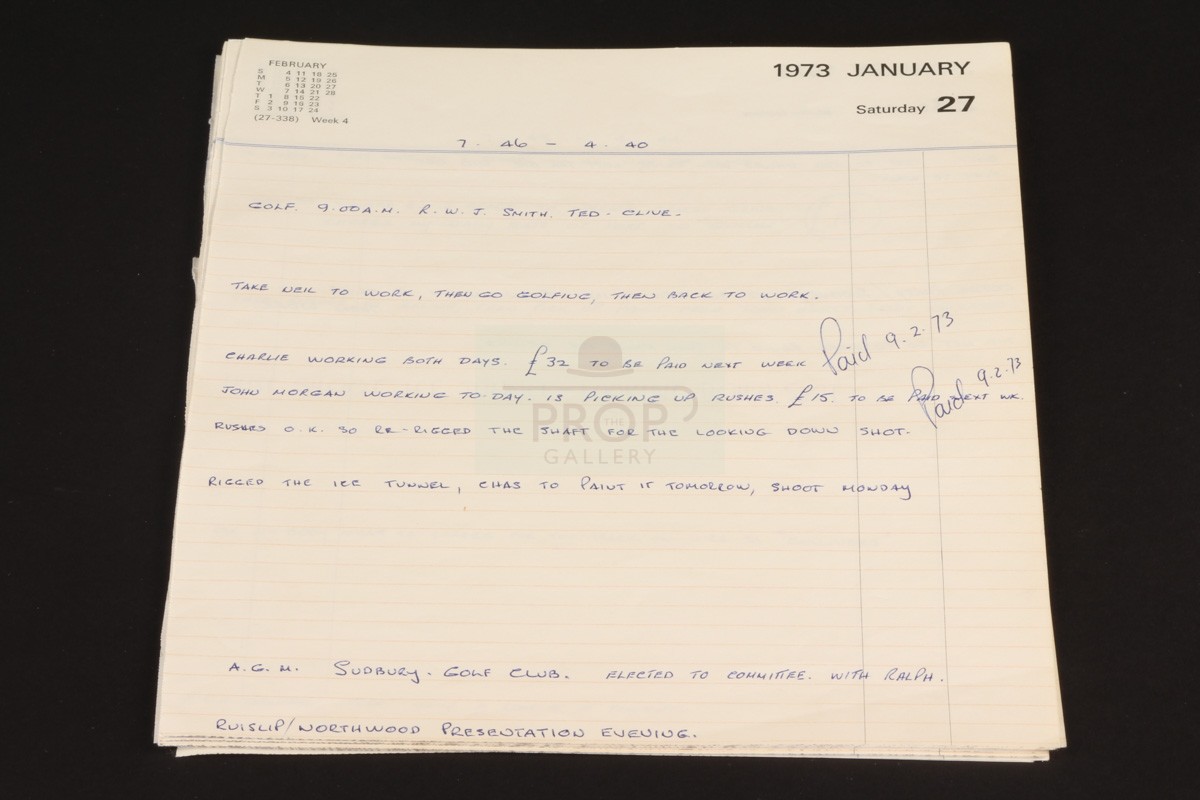 FEBRUARY
S 4 11 18 25
M 5 12 19 26
T 6 13 20 27
W 7 14 21 28
T 1 8 15 22
F 2 9 16 23
S 3 10 17 24
(27-338) Week 4
1973 JANUARY
Saturday 27
7. 46 - 4. 40
GOLF. 9.00 A.M. R. W. J. SMITH. TED - CLIVE.
TAKE NEIL TO WORK, THEN GO GOLFING, THEN BACK TO WORK.
CHARLIE WORKING BOTH DAYS. £32 TO BE PAID NEXT WEEK Paid 9.2.73
JOHN MORGAN WORKING TO-DAY. IS PICKING UP RUSHES. £15. TO BE PAID NEXT WK. Paid 9.2.73
RUSHES O.K. SO RE-RIGGED THE SHAFT FOR THE LOOKING DOWN SHOT.
RIGGED THE ICE TUNNEL, CHAS TO PAINT IT TOMORROW, SHOOT MONDAY
A.G.M. SUDBURY. GOLF CLUB. ELECTED TO COMMITTEE. WITH RALPH.
RUISLIP/NORTHWOOD PRESENTATION EVENING.
THE
PROP
GALLERY